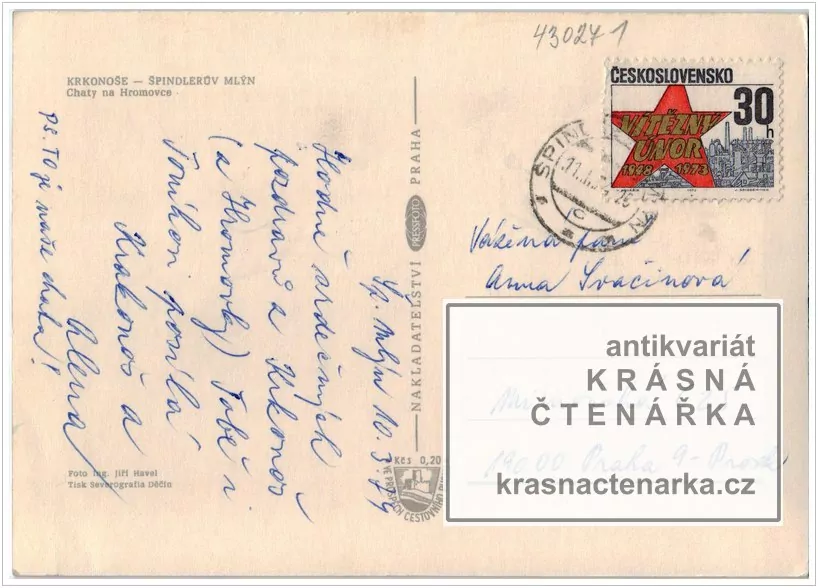 43027 1
KRKONOŠE — ŠPINDLERŮV MLÝN
Chaty na Hromovce
ČESKOSLOVENSKO
30 h
VÍTĚZNÝ
ÚNOR
1948 1973
Šp. Mlýn 10. 3. 74
Hodně srdečných
pozdravů z Krkonoš
(a Hromovky) Tobě i
posílá
Krakonoš a
Alena
PS. To je naše chata!
NAKLADATELSTVÍ PRESSFOTO PRAHA
Vážená paní
Anna Svačinová
190 00 Praha 9 - Prosek
antikvariát
KRÁSNÁ
ČTENÁŘKA
krasnactenarka.cz
Kčs 0,20
VE PROSPĚCH CESTOVNÍHO RUCHU
Foto Ing. Jiří Havel
Tisk Severografia Děčín